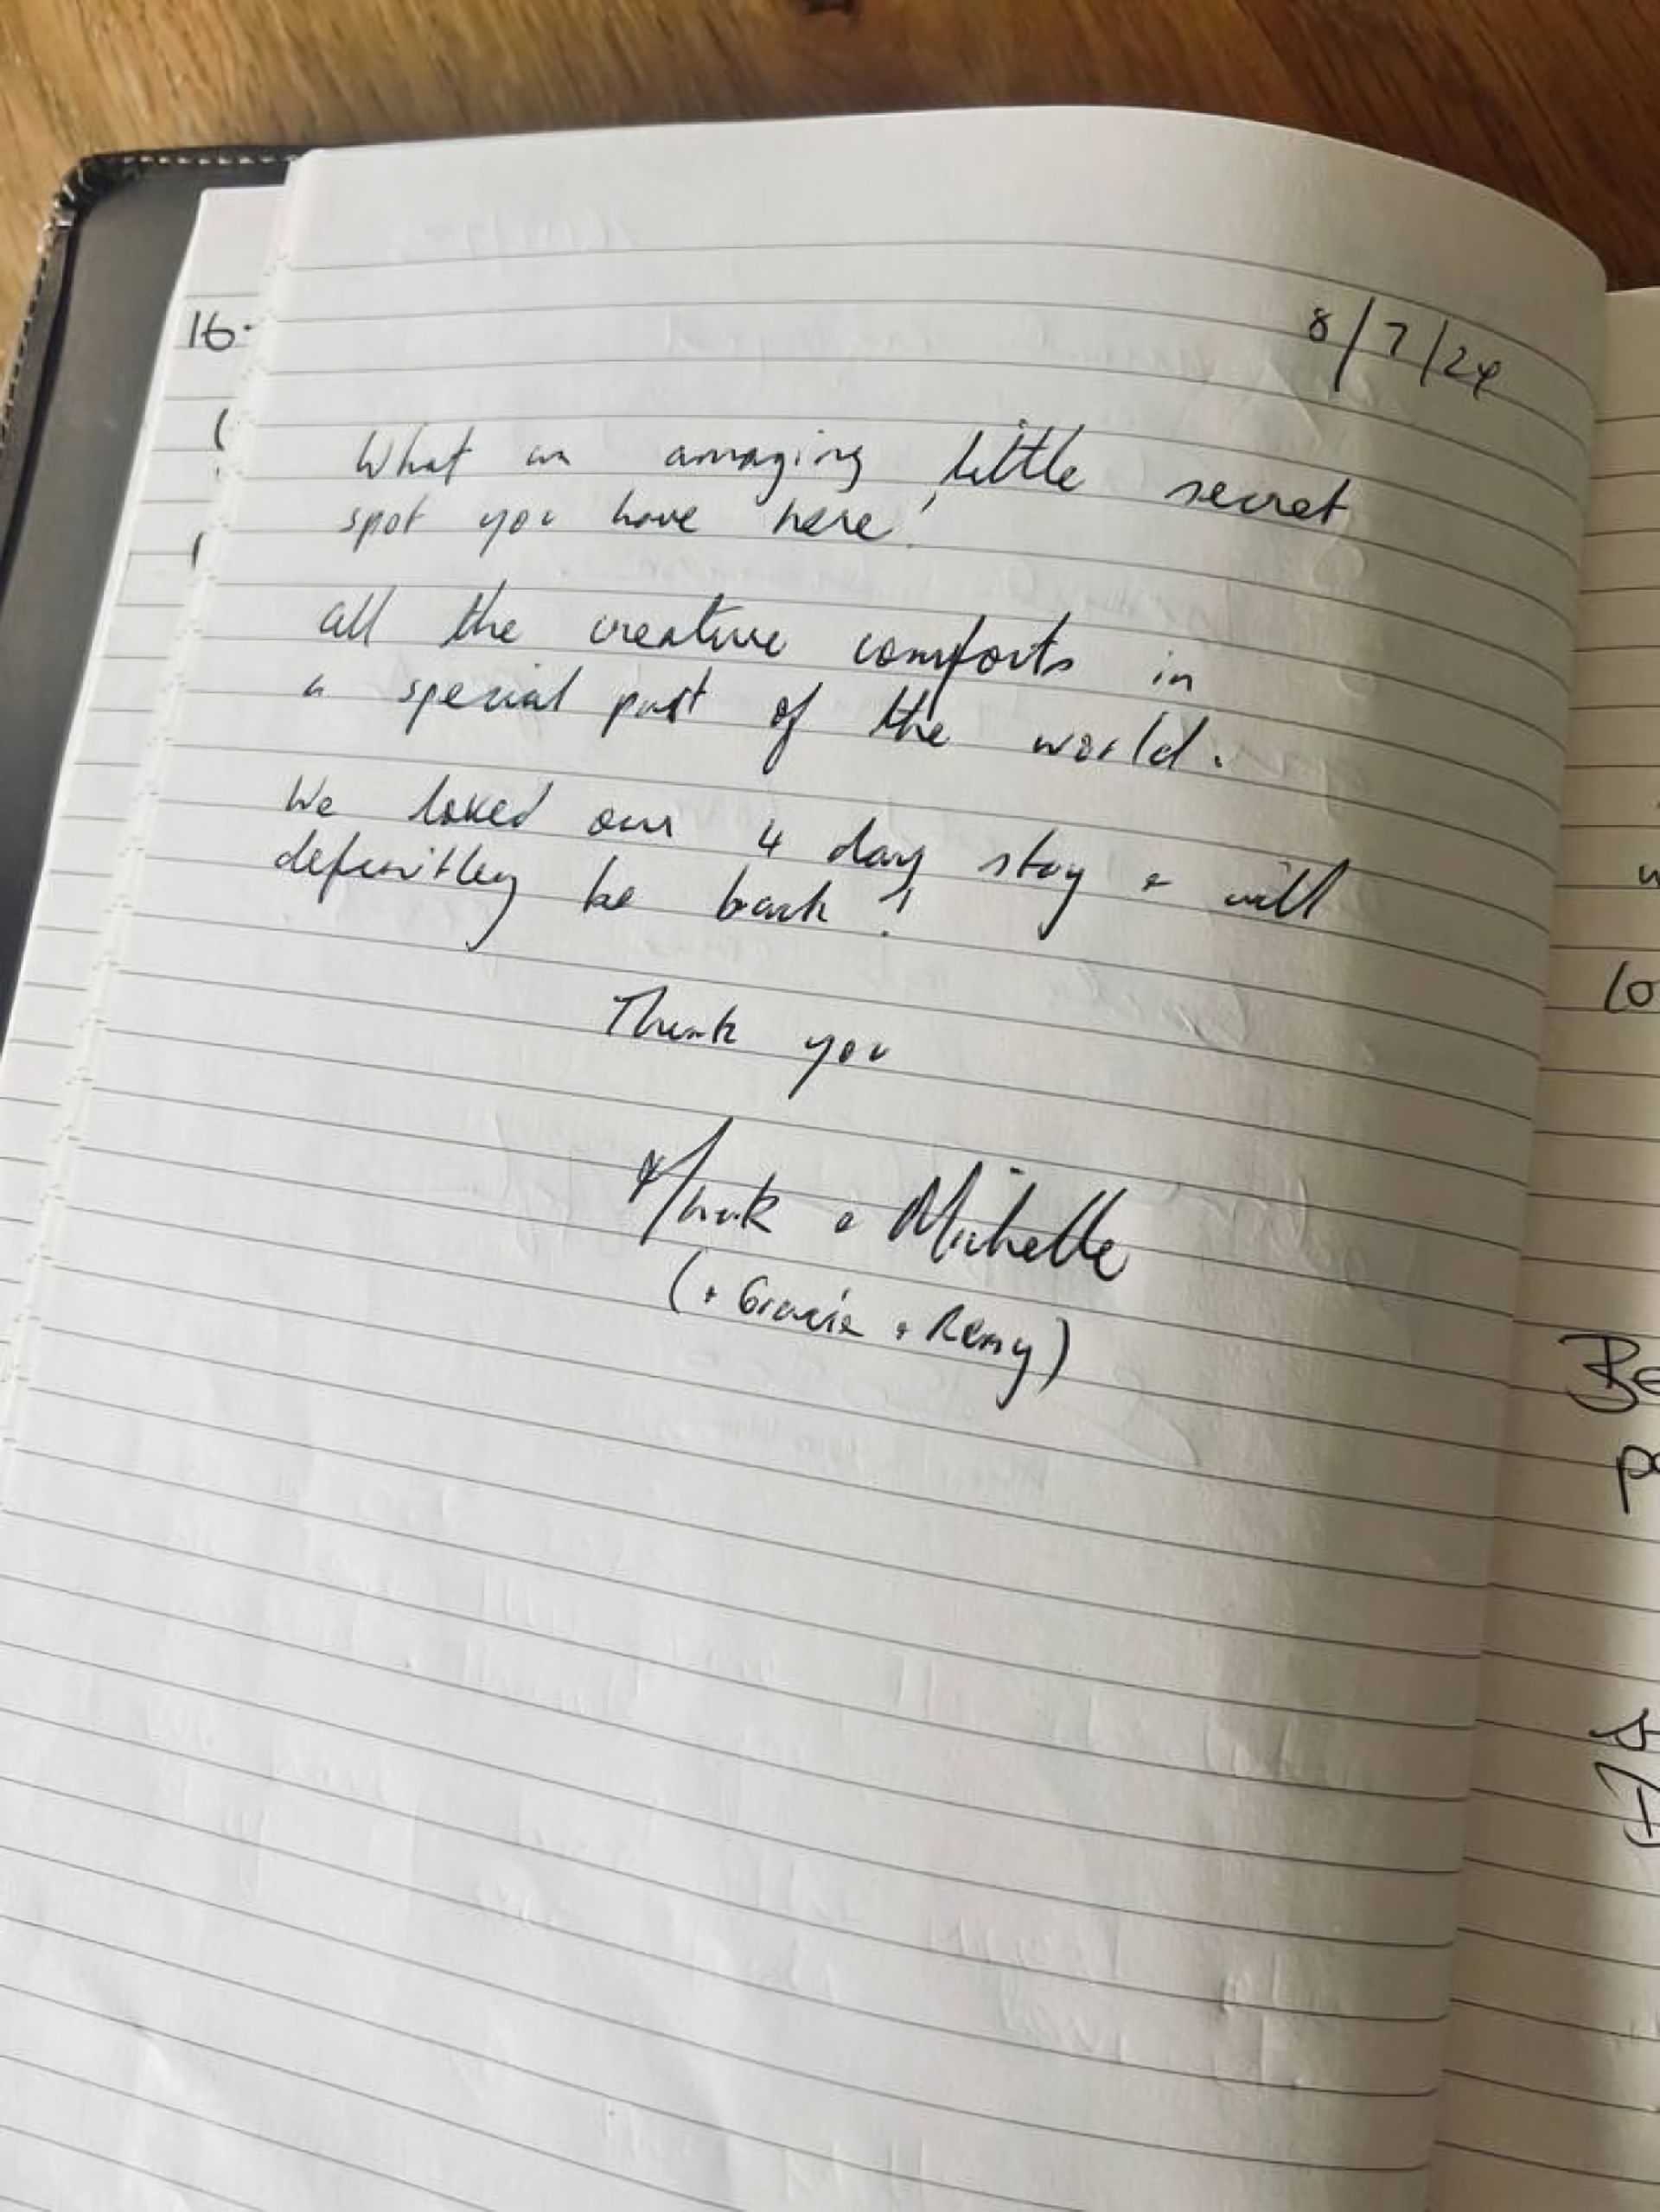 8/7/24
What an amazing little secret
spot you have here!
all the creature comforts in
a special part of the world.
We loved our 4 day stay & will
definitley be back!
Thank you
& Michelle
(+ Gracie + Remy)
16.
lo
Be